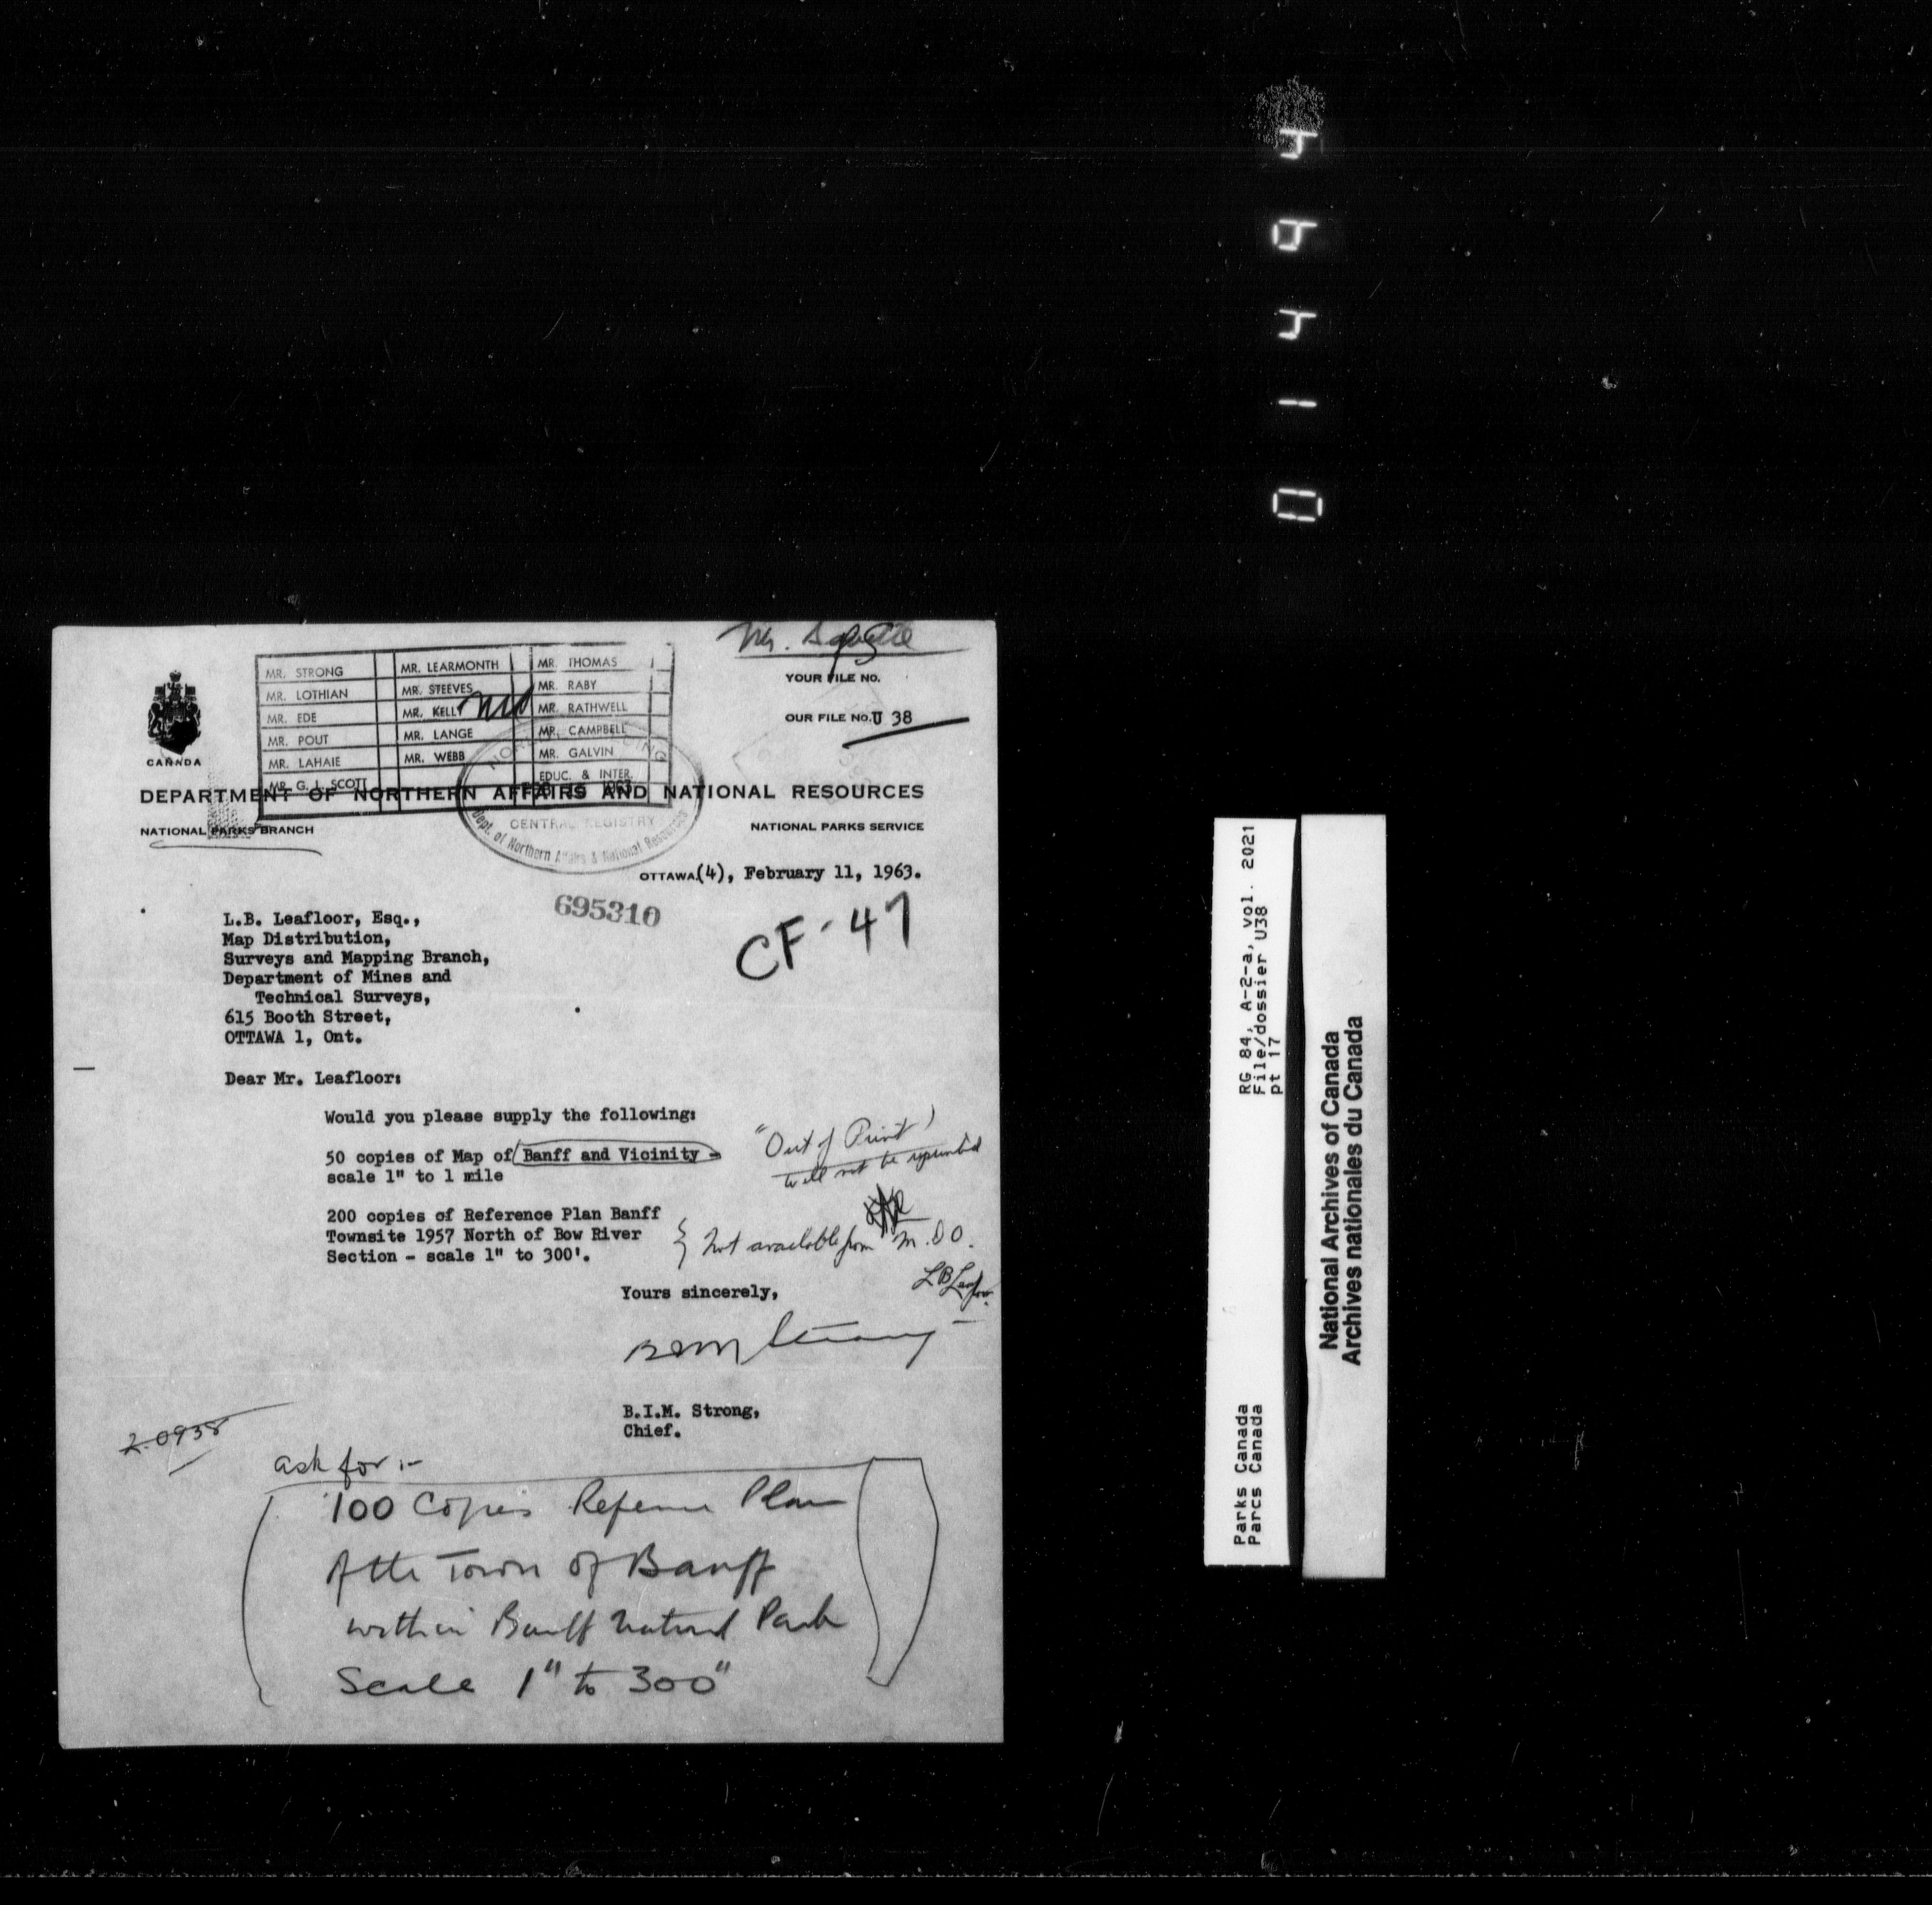 Mr.
MR. STRONG MR. LEARMONTH MR. THOMAS
MR. LOTHIAN MR. STEEVES MR. RABY
MR. EDE MR. KELLY MR. RATHWELL
MR. POUT MR. LANGE MR. CAMPBELL
MR. LAHAIE MR. WEBB MR. GALVIN
MR. G. L. SCOTT EDUC. & INTER.
YOUR FILE NO.
OUR FILE NO. U 38
CANADA
DEPARTMENT OF NORTHERN AFFAIRS AND NATIONAL RESOURCES
1963
CENTRAL REGISTRY
Dept. of Northern Affairs & National Resources
NATIONAL PARKS BRANCH
NATIONAL PARKS SERVICE
OTTAWA (4), February 11, 1963.
695310
CF-47
L.B. Leafloor, Esq.,
Map Distribution,
Surveys and Mapping Branch,
Department of Mines and
Technical Surveys,
615 Booth Street,
OTTAWA 1, Ont.
Dear Mr. Leafloor:
Would you please supply the following:
50 copies of Map of Banff and Vicinity -
scale 1" to 1 mile
"Out of Print)
will not be reprinted
200 copies of Reference Plan Banff
Townsite 1957 North of Bow River
Section - scale 1" to 300'.
} Not available from M.D.O.
LB Leafloor
Yours sincerely,
BIM Strong
B.I.M. Strong,
Chief.
ask for :-
100 Copies Reference Plan
of the Town of Banff
within Banff National Park
Scale 1" to 300"
RG 84, A-2-a, vol. 2021
File/dossier U38
pt 17
Parks Canada
Parcs Canada
National Archives of Canada
Archives nationales du Canada